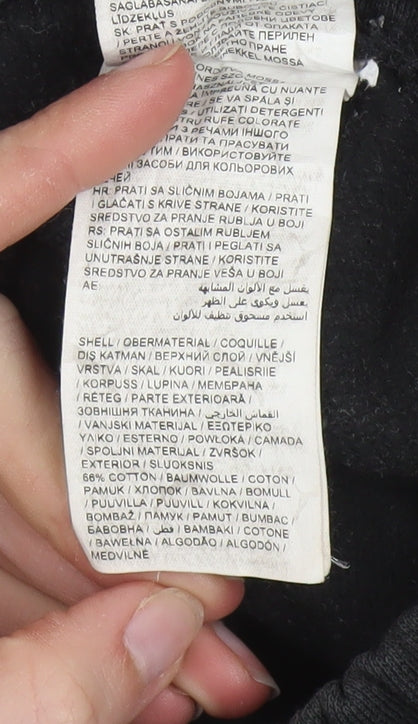 LĪDZEKĻUS
/ PERTE A
ПЕРИЛЕН
ПРАНЕ
CU NUANTE
/ SE VA SPĂLA ȘI
/ UTILIZAȚI DETERGENTI
RUFE COLORATE
З РЕЧАМИ ІНШОГО
ПРАТИ ТА ПРАСУВАТИ
/ ВИКОРИСТОВУЙТЕ
ЗАСОБИ ДЛЯ КОЛЬОРОВИХ
HR: PRATI SA SLIČNIM BOJAMA / PRATI
I GLAČATI S KRIVE STRANE / KORISTITE
SREDSTVO ZA PRANJE RUBLJA U BOJI
RS: PRATI SA OSTALIM RUBLJEM
SLIČNIH BOJA / PRATI I PEGLATI SA
UNUTRAŠNJE STRANE / KORISTITE
SREDSTVO ZA PRANJE VEŠA U BOJI
AE: يغسل مع الألوان المشابهه
يغسل ويكوى على الظهر
استخدم مسحوق تنظيف للألوان
SHELL / OBERMATERIAL / COQUILLE /
DIŞ KATMAN / ВЕРХНИЙ СЛОЙ / VNĚJŠÍ
VRSTVA / SKAL / KUORI / PEALISRIIE
/ KORPUSS / LUPINA / МЕМБРАНА
RÉTEG / PARTE EXTERIOARĂ /
ЗОВНІШНЯ ТКАНИНА / القماش الخارجي
/ VANJSKI MATERIJAL / ΕΞΩΤΕΡΙΚΟ
ΥΛΙΚΟ / ESTERNO / POWŁOKA / CAMADA
/ SPOLJNI MATERIJAL / ZVRŠOK /
EXTERIOR / SLUOKSNIS
66% COTTON / BAUMWOLLE / COTON /
PAMUK / ХЛОПОК / BAVLNA / BOMULL
/ PUUVILLA / PUUVILL / KOKVILNA /
BOMBAŽ / ПАМУК / PAMUT / BUMBAC /
БАВОВНА / قطن / ΒΑΜΒΑΚΙ / COTONE
/ BAWEŁNA / ALGODÃO / ALGODÓN /
MEDVILNĖ